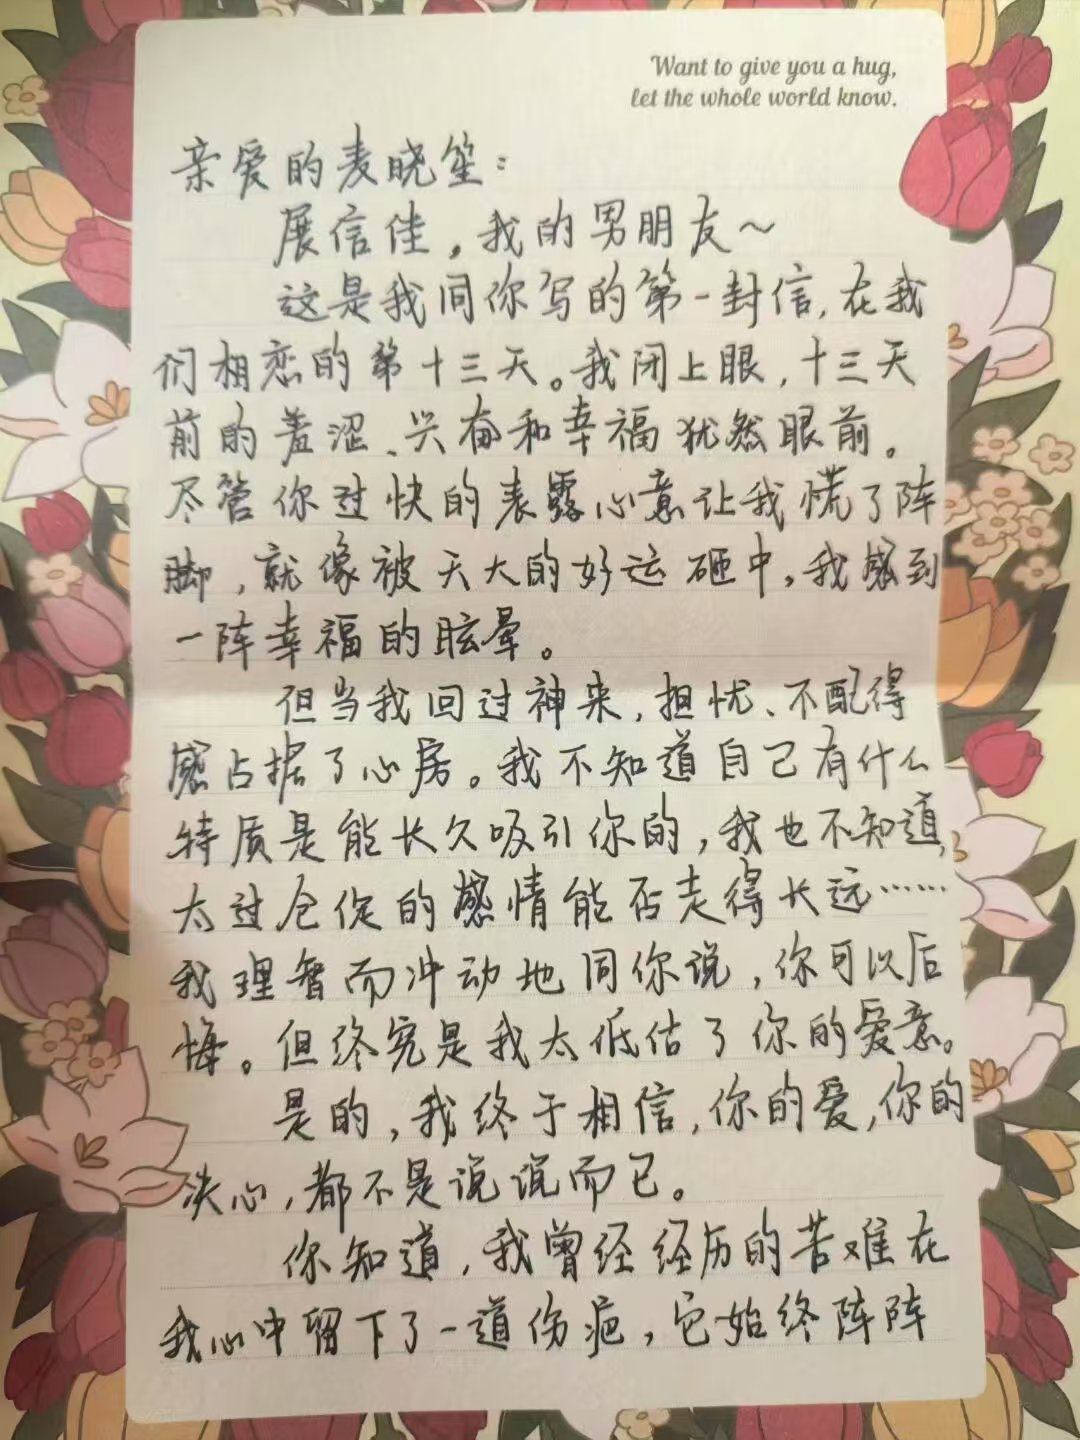 Want to give you a hug,
let the whole world know.
亲爱的麦晓笙：
展信佳，我的男朋友～
这是我同你写的第一封信，在我
们相恋的第十三天。我闭上眼，十三天
前的羞涩、兴奋和幸福犹然眼前。
尽管你过快的表露心意让我慌了阵
脚，就像被天大的好运砸中，我感到
一阵幸福的眩晕。
但当我回过神来，担忧、不配得
感占据了心房。我不知道自己有什么
特质是能长久吸引你的，我也不知道，
太过仓促的感情能否走得长远……
我理智而冲动地同你说，你可以后
悔。但终究是我太低估了你的爱意。
是的，我终于相信，你的爱，你的
决心，都不是说说而已。
你知道，我曾经经历的苦难在
我心中留下了一道伤疤，它始终阵阵